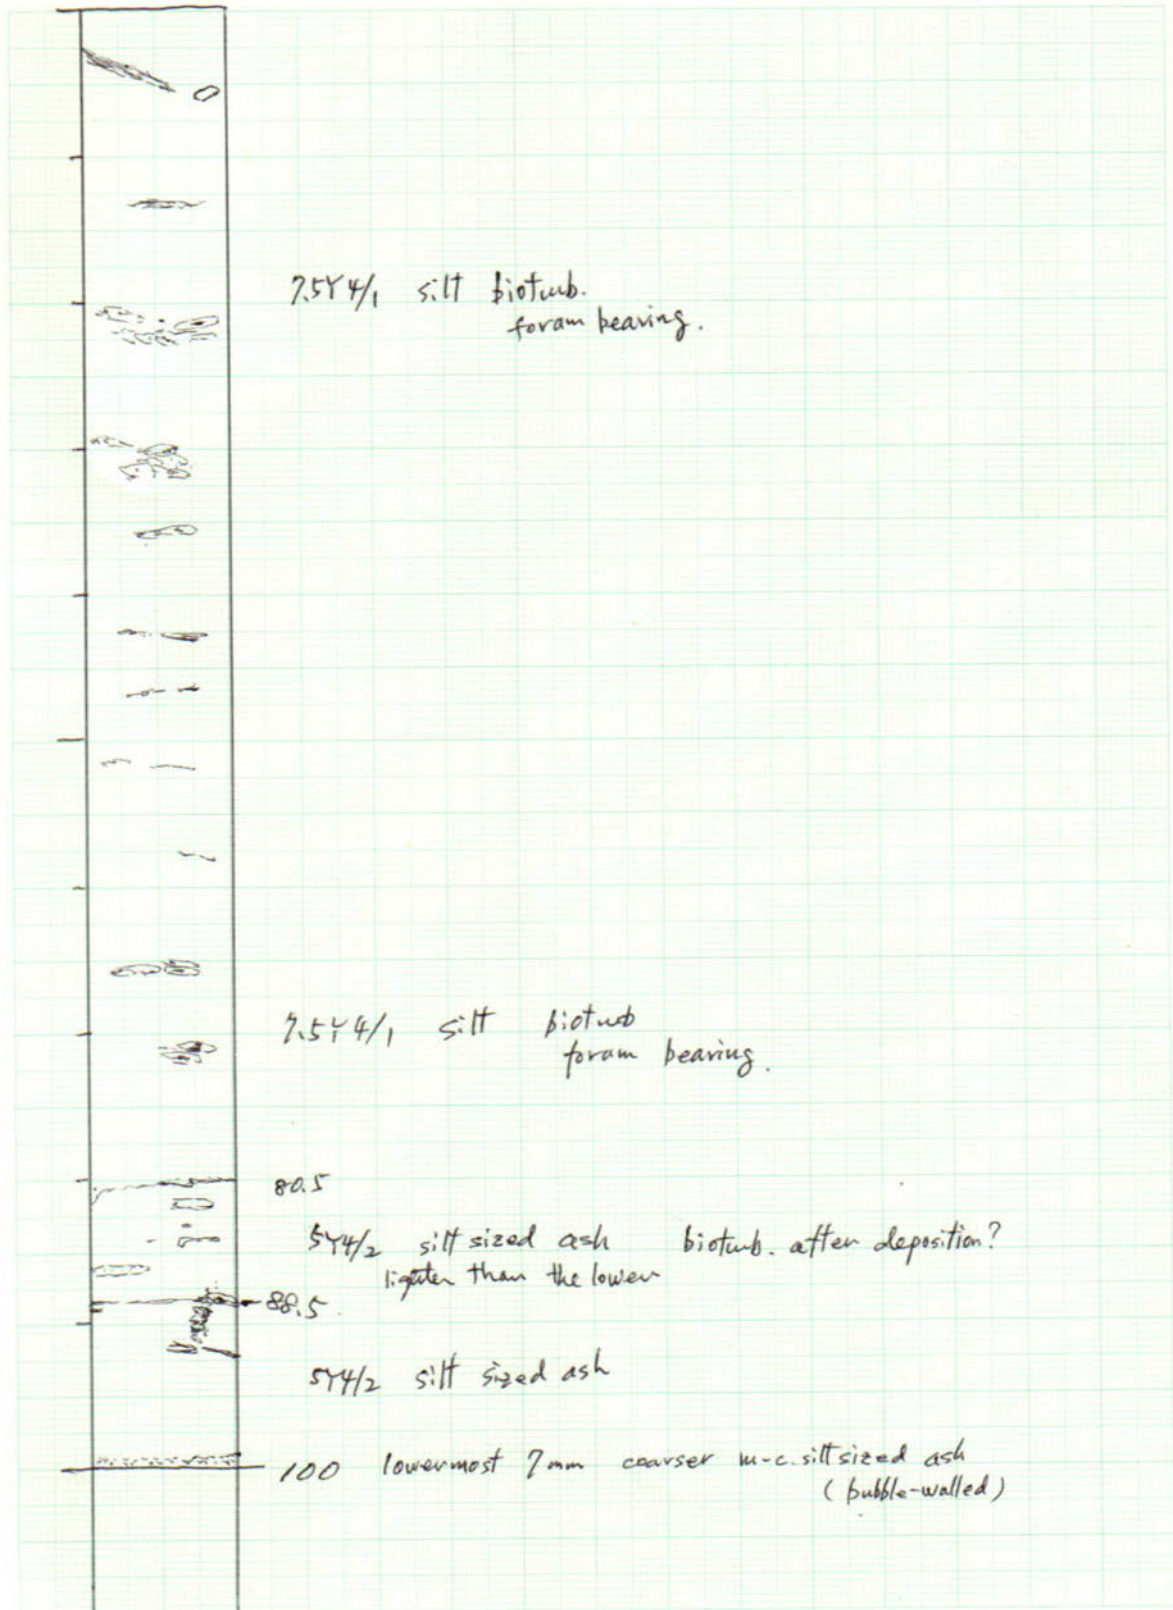 7.5Y 4/1 silt bioturb.
foram bearing.
7.5Y 4/1 silt bioturb
foram bearing.
80.5
5Y4/2 silt sized ash bioturb. after deposition?
ligter than the lower
88.5
5Y4/2 silt sized ash
100 lowermost 7mm coarser m-c. silt sized ash
(bubble-walled)